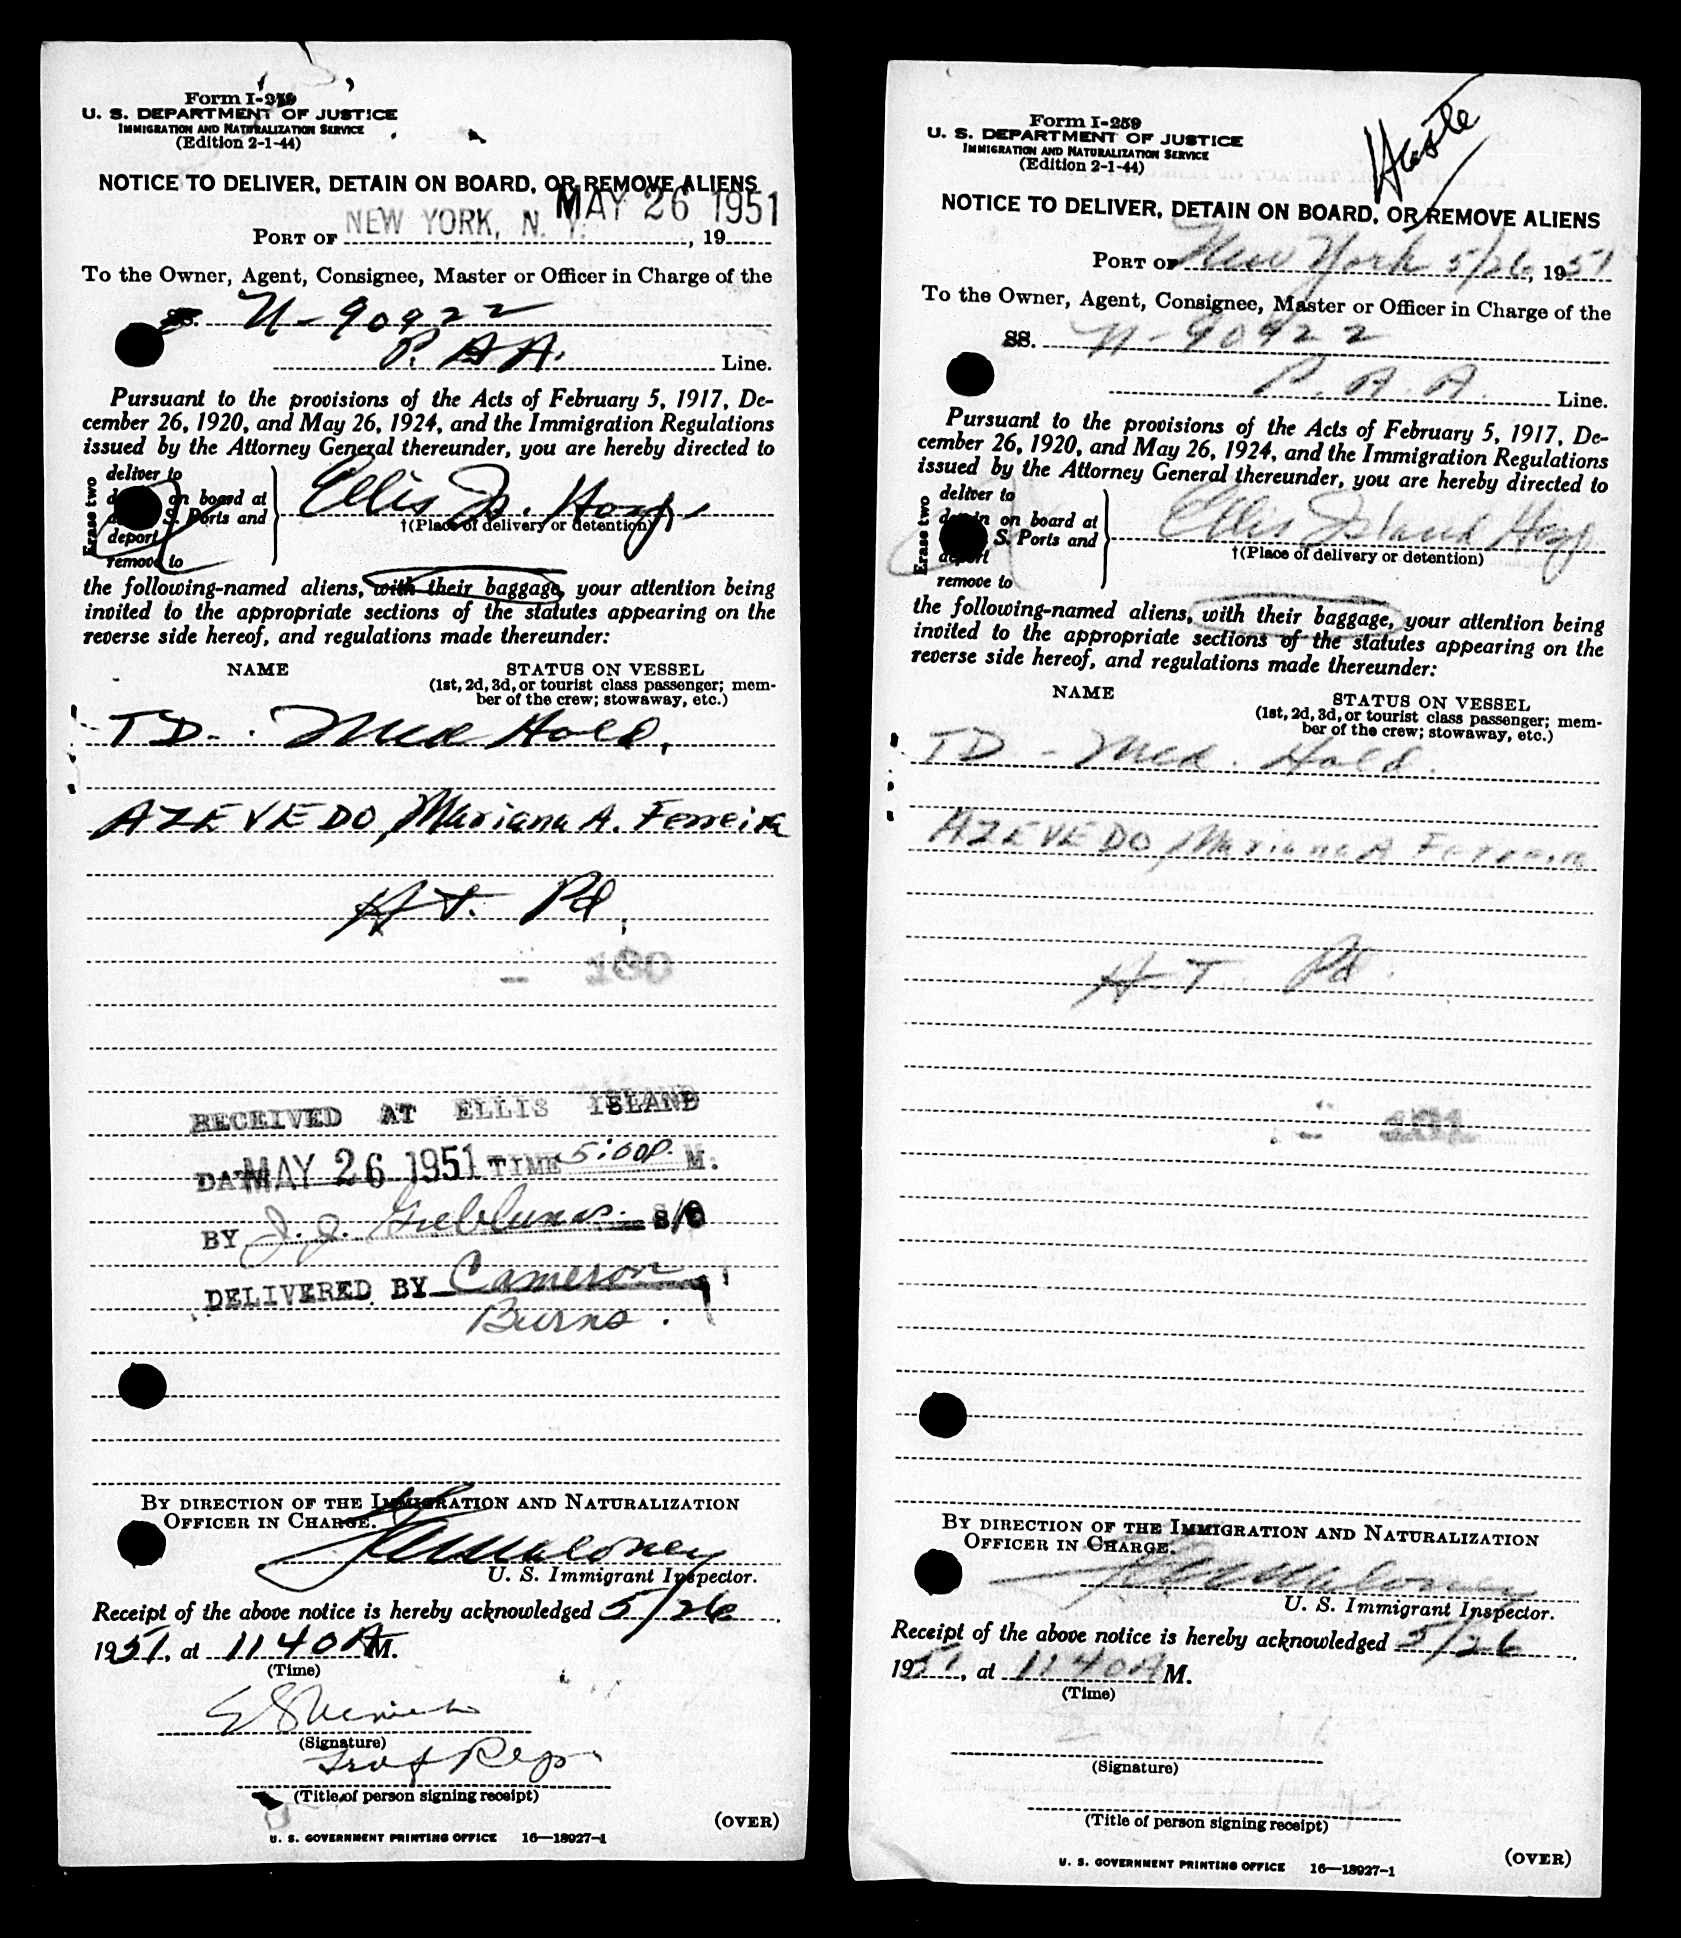 Form I-259
U. S. DEPARTMENT OF JUSTICE
IMMIGRATION AND NATURALIZATION SERVICE
(Edition 2-1-44)
NOTICE TO DELIVER, DETAIN ON BOARD, OR REMOVE ALIENS
MAY 26 1951
PORT OF NEW YORK, N. Y. , 19
To the Owner, Agent, Consignee, Master or Officer in Charge of the
SS. N-90922
P. A A. Line.
Pursuant to the provisions of the Acts of February 5, 1917, De-
cember 26, 1920, and May 26, 1924, and the Immigration Regulations
issued by the Attorney General thereunder, you are hereby directed to
Erase two
deliver to
on board at
S. Ports and
deport
remove to
Ellis Is. Hosp.
†(Place of delivery or detention)
the following-named aliens, with their baggage, your attention being
invited to the appropriate sections of the statutes appearing on the
reverse side hereof, and regulations made thereunder:
NAME STATUS ON VESSEL
(1st, 2d, 3d, or tourist class passenger; mem-
ber of the crew; stowaway, etc.)
TD - Med Hold.
AZEVEDO, Mariana A. Ferreira
H T. Pd.
- 130
RECEIVED AT ELLIS ISLAND
DATE MAY 26 1951 TIME 5:00P. M.
BY J. J.
DELIVERED BY Cameron
Burns.
BY DIRECTION OF THE IMMIGRATION AND NATURALIZATION
OFFICER IN CHARGE.
Maloney
U. S. Immigrant Inspector.
Receipt of the above notice is hereby acknowledged 5/26
1951, at 1140 A M.
(Time)
(Signature)
Traf Rep.
(Title of person signing receipt)
(OVER)
U. S. GOVERNMENT PRINTING OFFICE 16—18927-1
Haste
Form I-259
U. S. DEPARTMENT OF JUSTICE
IMMIGRATION AND NATURALIZATION SERVICE
(Edition 2-1-44)
NOTICE TO DELIVER, DETAIN ON BOARD, OR REMOVE ALIENS
PORT OF New York 5/26, 1951
To the Owner, Agent, Consignee, Master or Officer in Charge of the
SS. N-90922
P. A. A. Line.
Pursuant to the provisions of the Acts of February 5, 1917, De-
cember 26, 1920, and May 26, 1924, and the Immigration Regulations
issued by the Attorney General thereunder, you are hereby directed to
Erase two
deliver to
on board at
S. Ports and
remove to
Ellis Island Hosp
†(Place of delivery or detention)
the following-named aliens, with their baggage, your attention being
invited to the appropriate sections of the statutes appearing on the
reverse side hereof, and regulations made thereunder:
NAME STATUS ON VESSEL
(1st, 2d, 3d, or tourist class passenger; mem-
ber of the crew; stowaway, etc.)
TD - Med. Hold.
AZEVEDO, Mariana A Ferreira
H. T. Pd.
- 131
BY DIRECTION OF THE IMMIGRATION AND NATURALIZATION
OFFICER IN CHARGE.
Maloney
U. S. Immigrant Inspector.
Receipt of the above notice is hereby acknowledged 5/26
1951, at 1140 A M.
(Time)
(Signature)
(Title of person signing receipt)
(OVER)
U. S. GOVERNMENT PRINTING OFFICE 16—18927-1